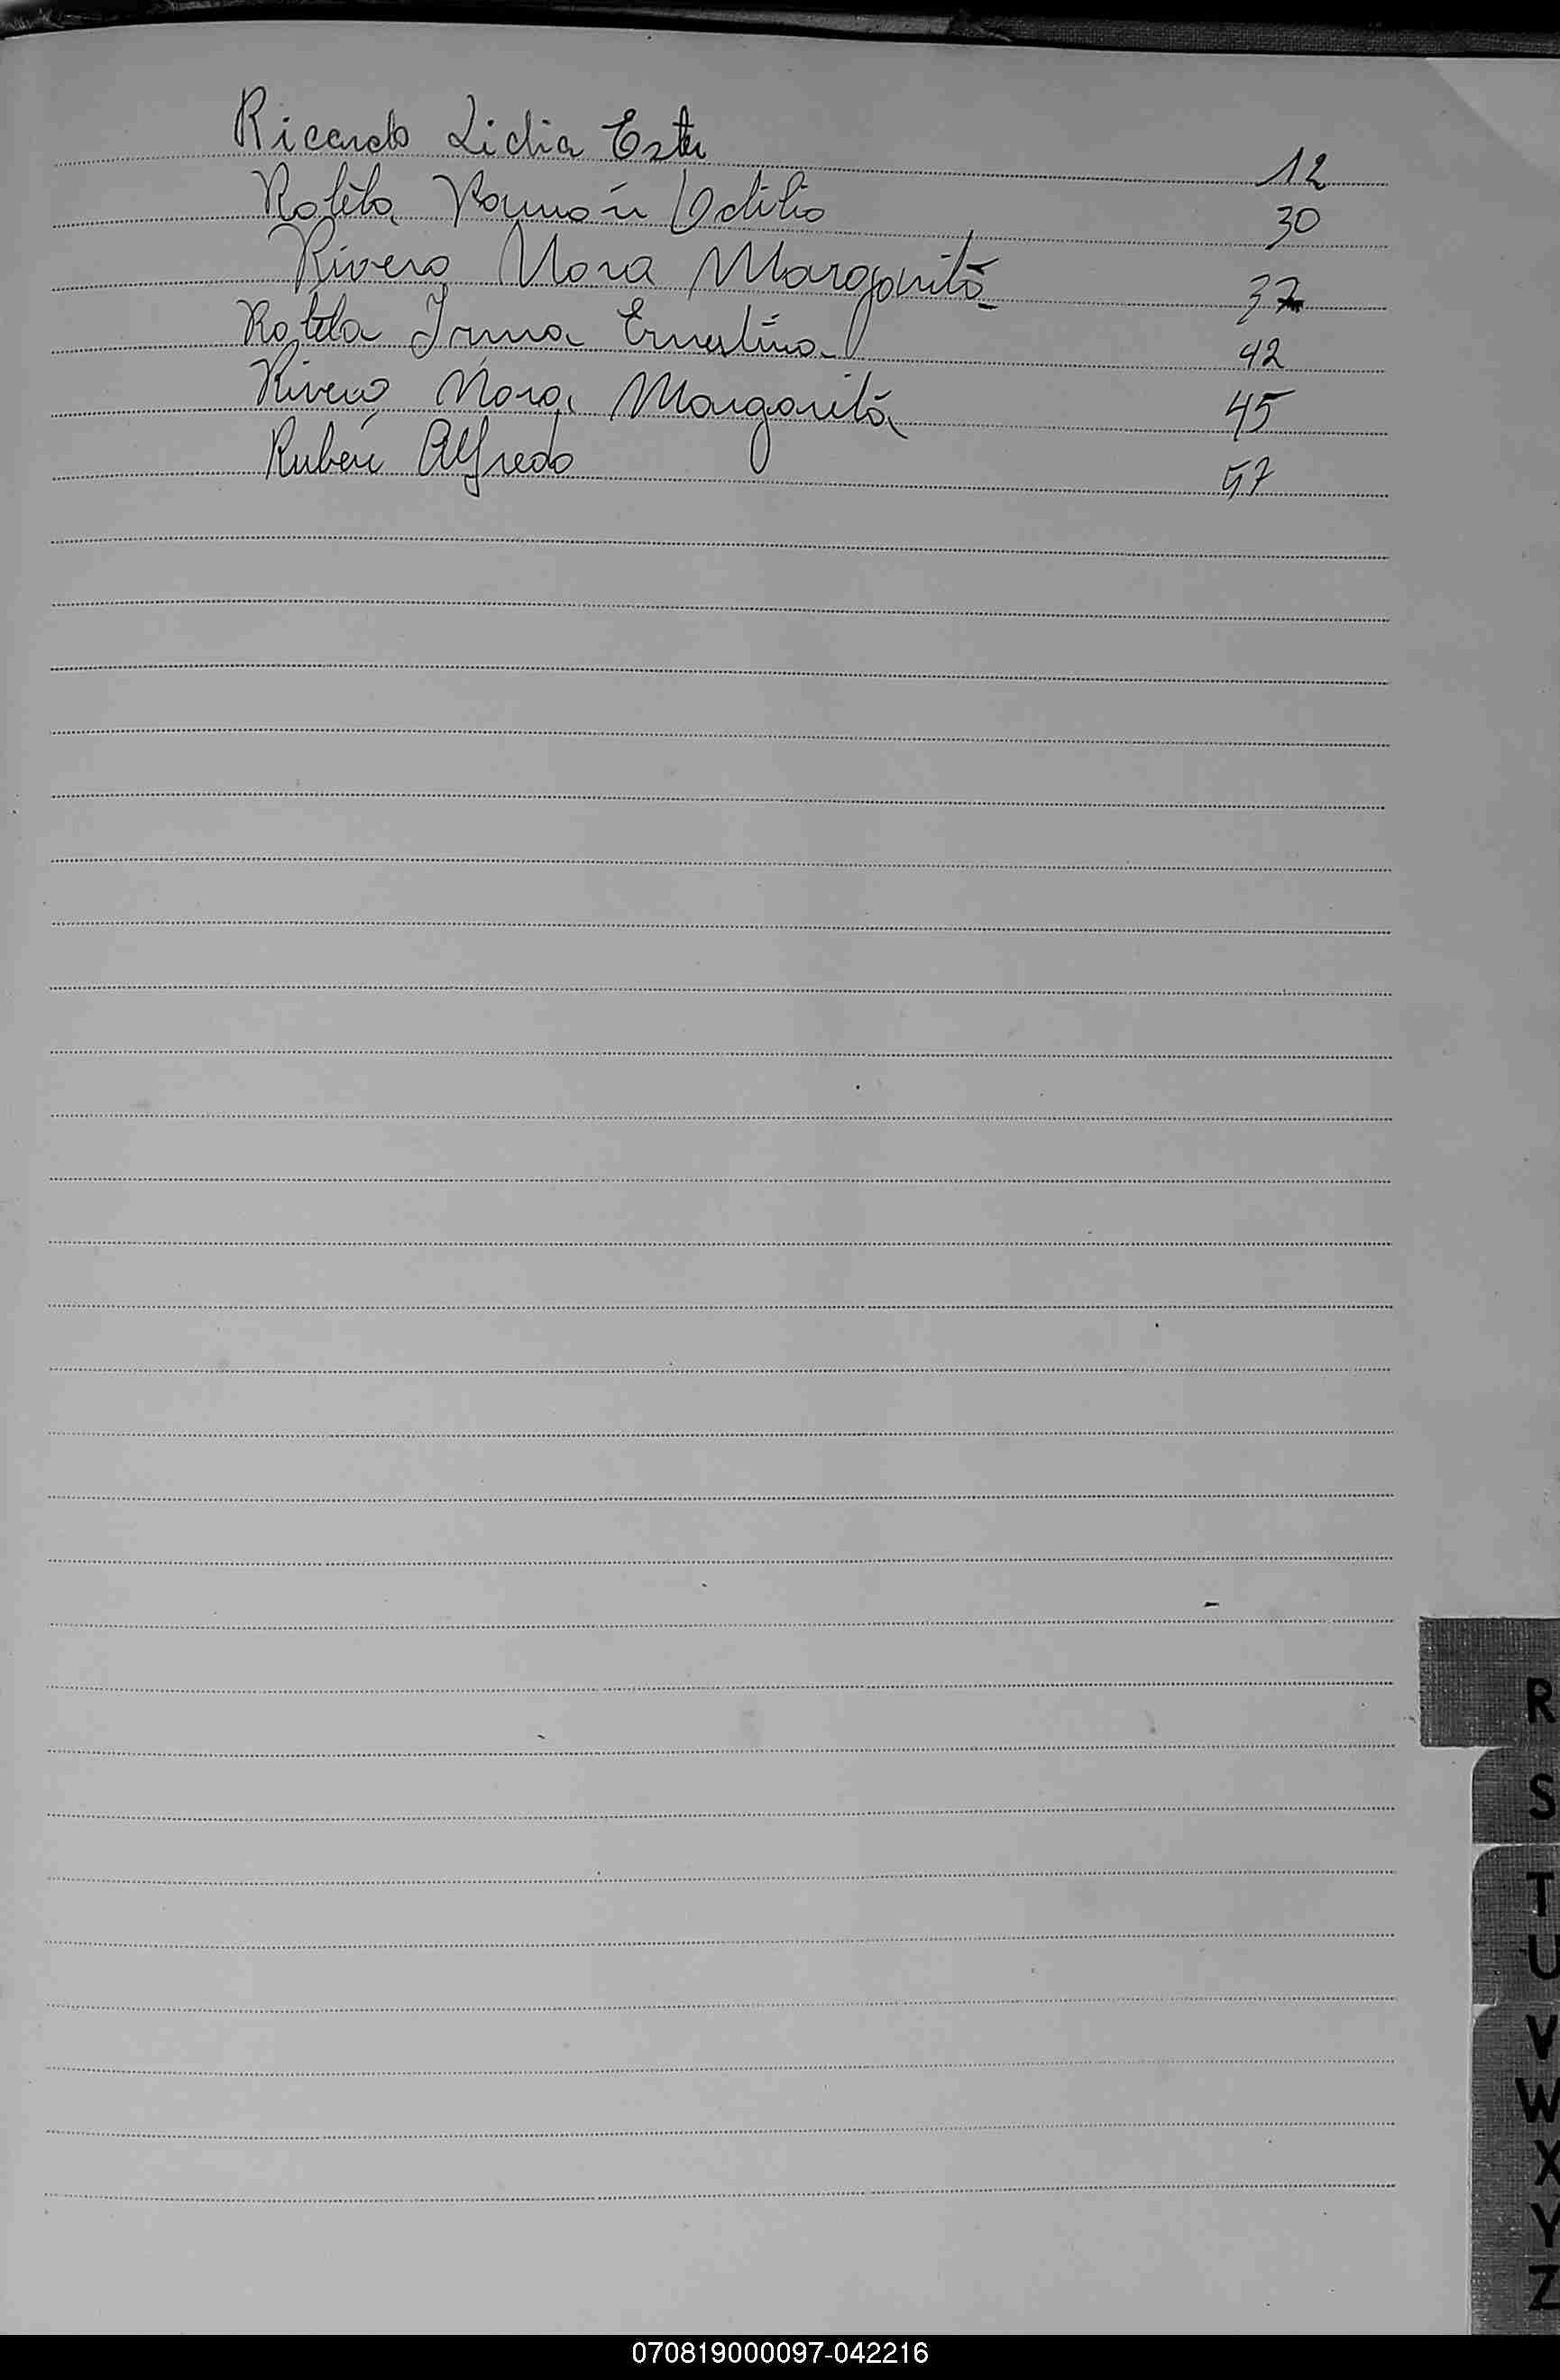 Ricardo Lidia Ester 12
Rolēla Ramón Odilio 30
Rivero Nora Margarita 37
Rolēla Irma Ernestina 42
Rivero Nora Margarita 45
Rubén Alfredo 57
R
S
T
U
V
W
X
Y
Z
070819000097-042216